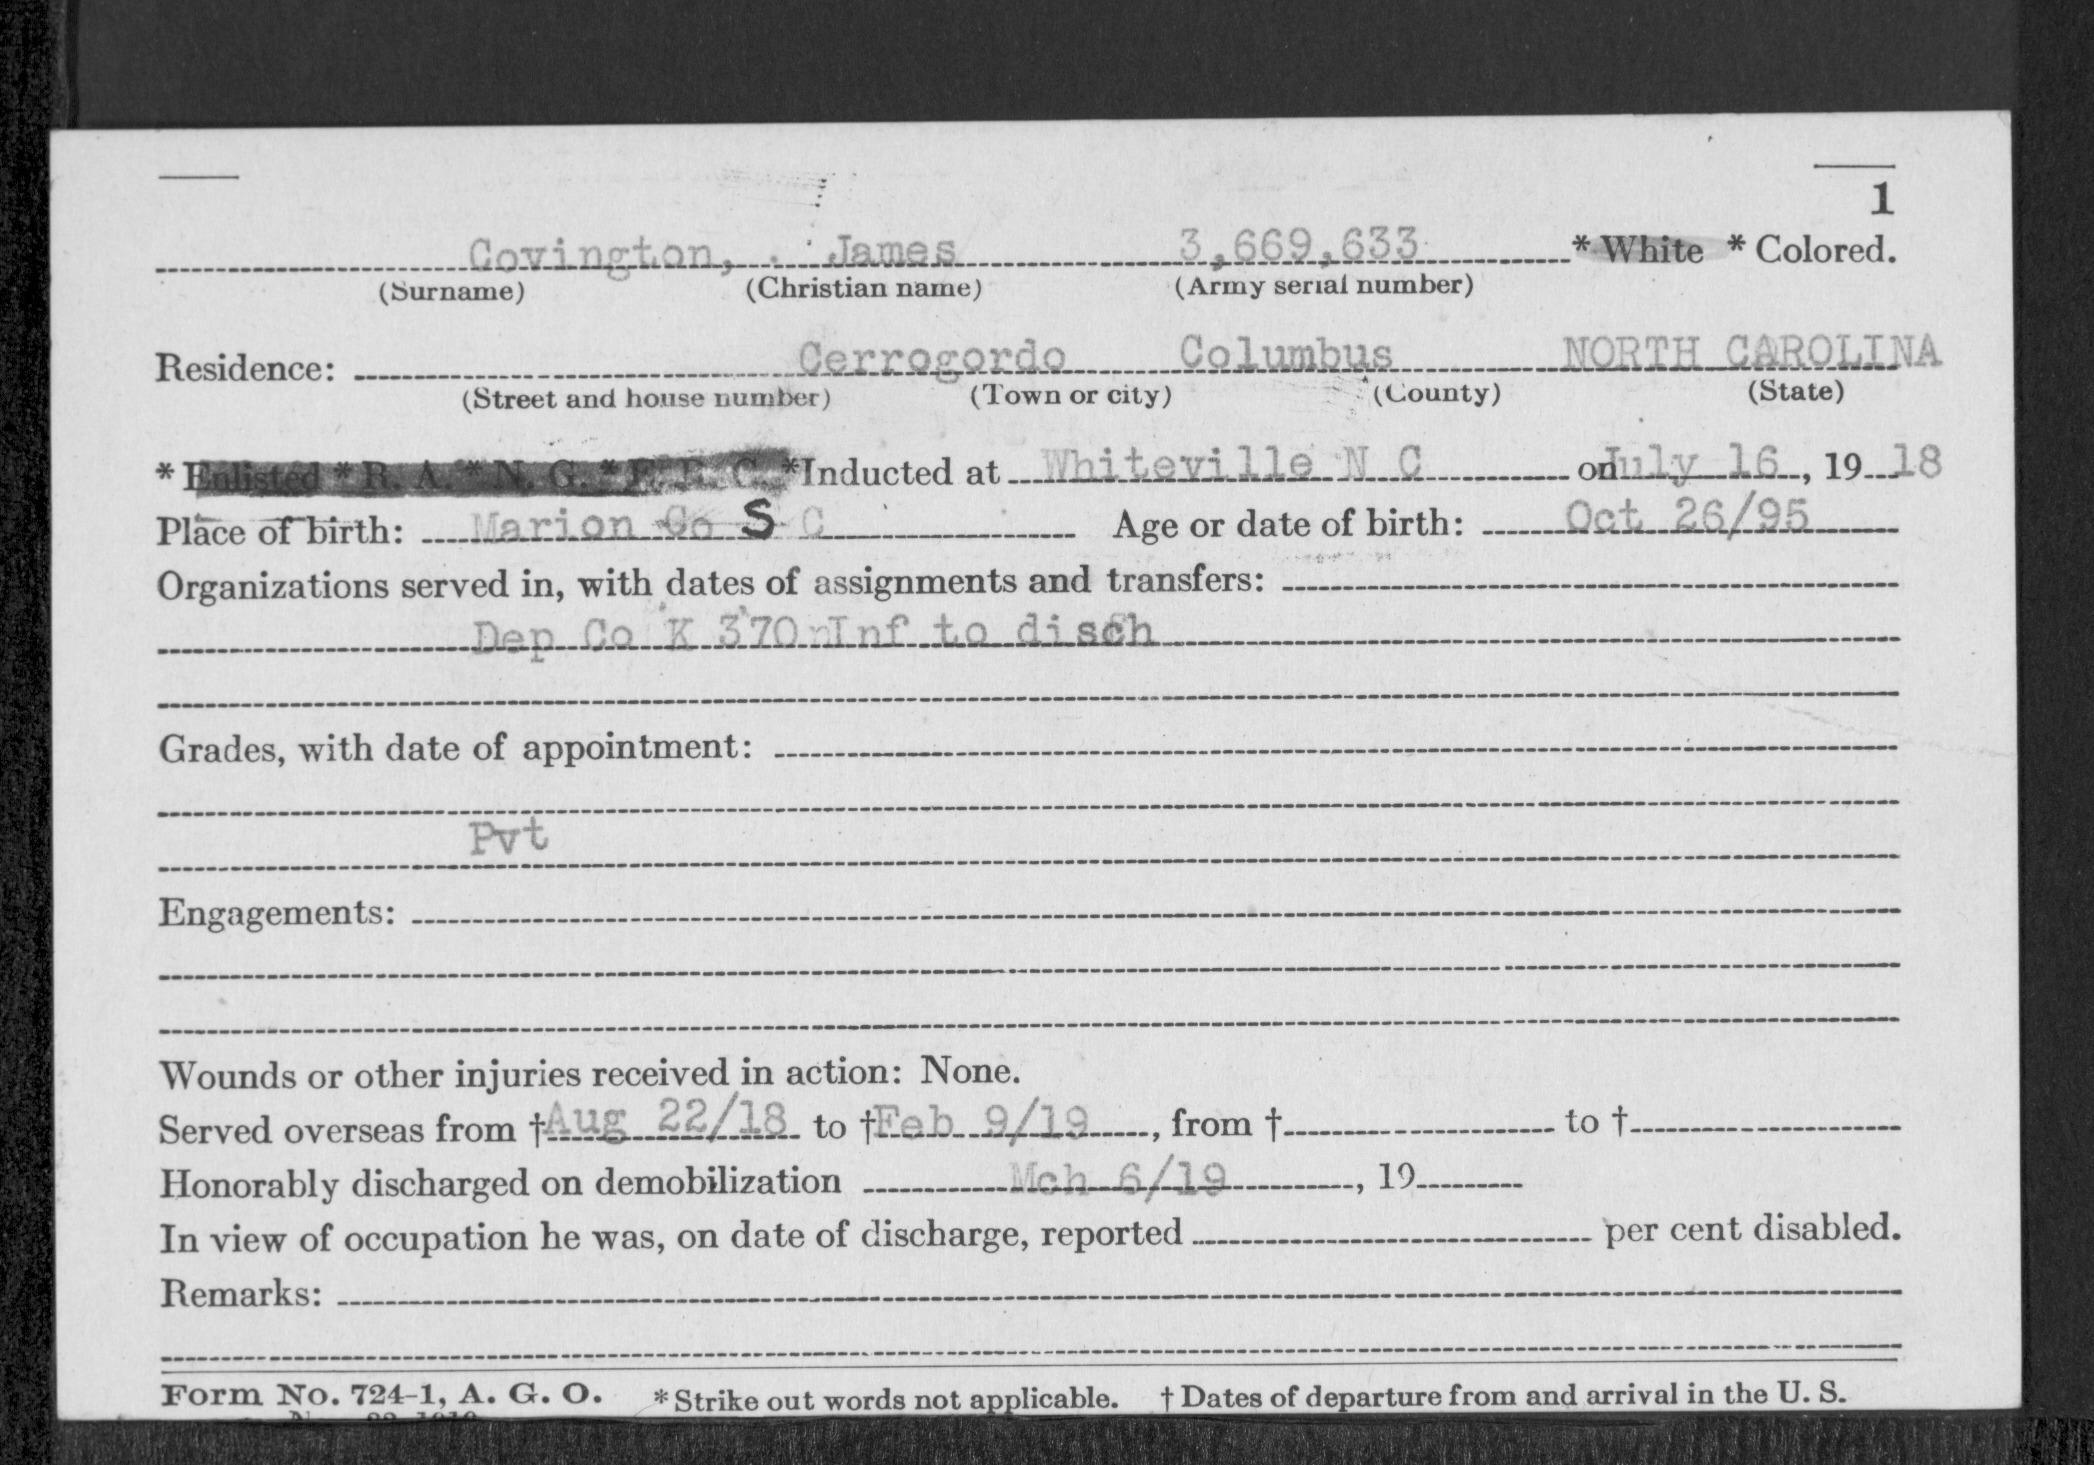 1
Covington, James 3,669,633 * White * Colored.
(Surname) (Christian name) (Army serial number)
Residence: Cerrogordo Columbus NORTH CAROLINA
(Street and house number) (Town or city) (County) (State)
* Enlisted * R. A. * N. G. * E. R. C. *Inducted at Whiteville N C on July 16, 19 18
Place of birth: Marion Co S C Age or date of birth: Oct 26/95
Organizations served in, with dates of assignments and transfers:
Dep Co K 370 Inf to disch
Grades, with date of appointment:
Pvt
Engagements:
Wounds or other injuries received in action: None.
Served overseas from † Aug 22/18 to † Feb 9/19, from † to †
Honorably discharged on demobilization Mch 6/19, 19
In view of occupation he was, on date of discharge, reported per cent disabled.
Remarks:
Form No. 724-1, A. G. O. * Strike out words not applicable. † Dates of departure from and arrival in the U. S.